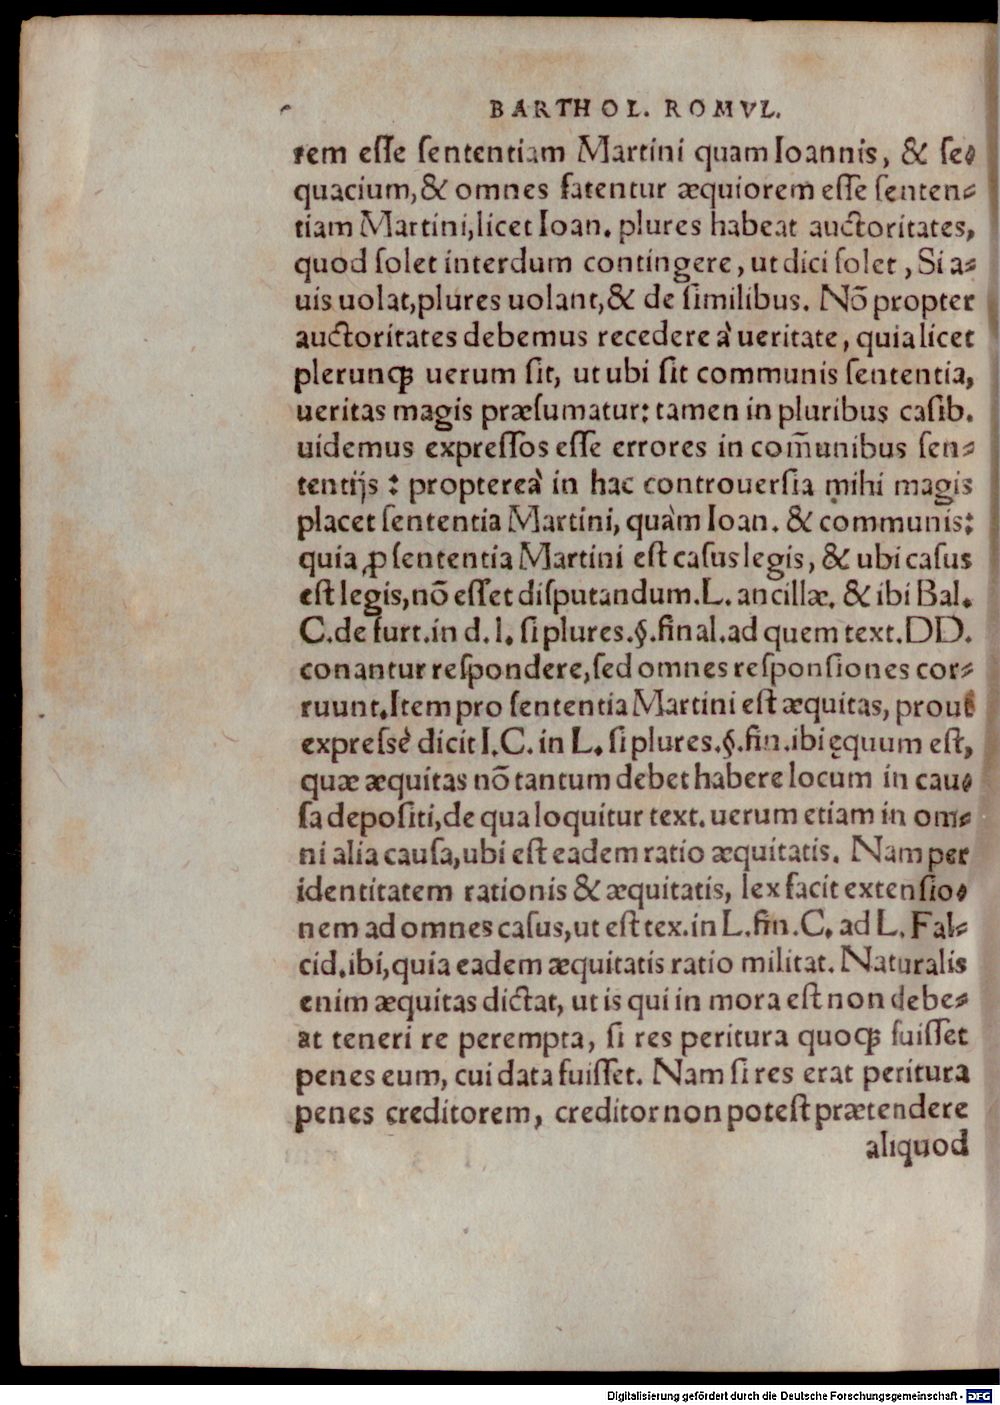 BARTHOL. ROMVL.
rem esse sententiam Martini quam Ioannis, & se-
quacium, & omnes fatentur æquiorem esse senten-
tiam Martini, licet Ioan. plures habeat auctoritates,
quod solet interdum contingere, ut dici solet, Si a-
uis uolat, plures uolant, & de similibus. Nō propter
auctoritates debemus recedere à ueritate, quia licet
plerunqꝫ uerum sit, ut ubi sit communis sententia,
ueritas magis præsumatur: tamen in pluribus casib.
uidemus expressos esse errores in com̄unibus sen-
tentijs : proptereà in hac controuersia mihi magis
placet sententia Martini, quàm Ioan. & communis:
quia ꝓ sententia Martini est casus legis, & ubi casus
est legis, nō esset disputandum. L. ancillæ. & ibi Bal.
C. de furt. in d. l. si plures. §. final. ad quem text. DD.
conantur respondere, sed omnes responsiones cor-
ruunt. Item pro sententia Martini est æquitas, prout
expressè dicit I. C. in L. si plures. §. fin. ibi ęquum est,
quæ æquitas nō tantum debet habere locum in cau-
sa depositi, de qua loquitur text. uerum etiam in om-
ni alia causa, ubi est eadem ratio æquitatis. Nam per
identitatem rationis & æquitatis, lex facit extensio-
nem ad omnes casus, ut est tex. in L. fin. C. ad L. Fal-
cid. ibi, quia eadem æquitatis ratio militat. Naturalis
enim æquitas dictat, ut is qui in mora est non debe-
at teneri re perempta, si res peritura quoqꝫ fuisset
penes eum, cui data fuisset. Nam si res erat peritura
penes creditorem, creditor non potest prætendere
aliquod
Digitalisierung gefördert durch die Deutsche Forschungsgemeinschaft - DFG